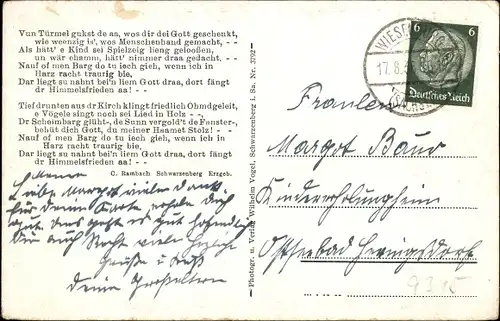 Vun Türmel gukst de aa, wos dir dei Gott geschenkt,
wie weenzig is', wos Menschenhand gemacht, - -
Als hätt' e Kind sei Spielzeig lieng gelooßen,
un wär ehamm, hätt' nimmer draa gedacht. - -
Nauf of men Barg do tu iech gieh, wenn ich in
Harz racht traurig bie.
Dar liegt su nahnt bei'n liem Gott draa, dort fängt
dr Himmelsfrieden aa! - -
Tief drunten aus dr Kirch klingt friedlich Ohmdgeleit,
e Vögele singt noch sei Lied in Holz - -,
Dr Scheimbarg glüht-, de Sunn vergold't de Fenster-,
behüt dich Gott, du meiner Haamet Stolz! - -
Nauf of men Barg do tu iech gieh, wenn ich in
Harz racht traurig bie.
Dar liegt su nahnt bei'n liem Gott draa, dort fängt
dr Himmelsfrieden aa! - -
C. Rambach Schwarzenberg Erzgeb.
Meine
liebe Margot vielen Dank
für deine Karte
gut
Dir auch
Grüße u Kuß
deine Großeltern
Photogr. u. Verlag Wilhelm Vogel, Schwarzenberg i. Sa. Nr. 3792
WIESEN
17.8.3
(SACHS
6 6
Deutsches Reich
Fräulein
Margot Baur
Kindererholungsheim
Ostseebad Heringsdorf
9315